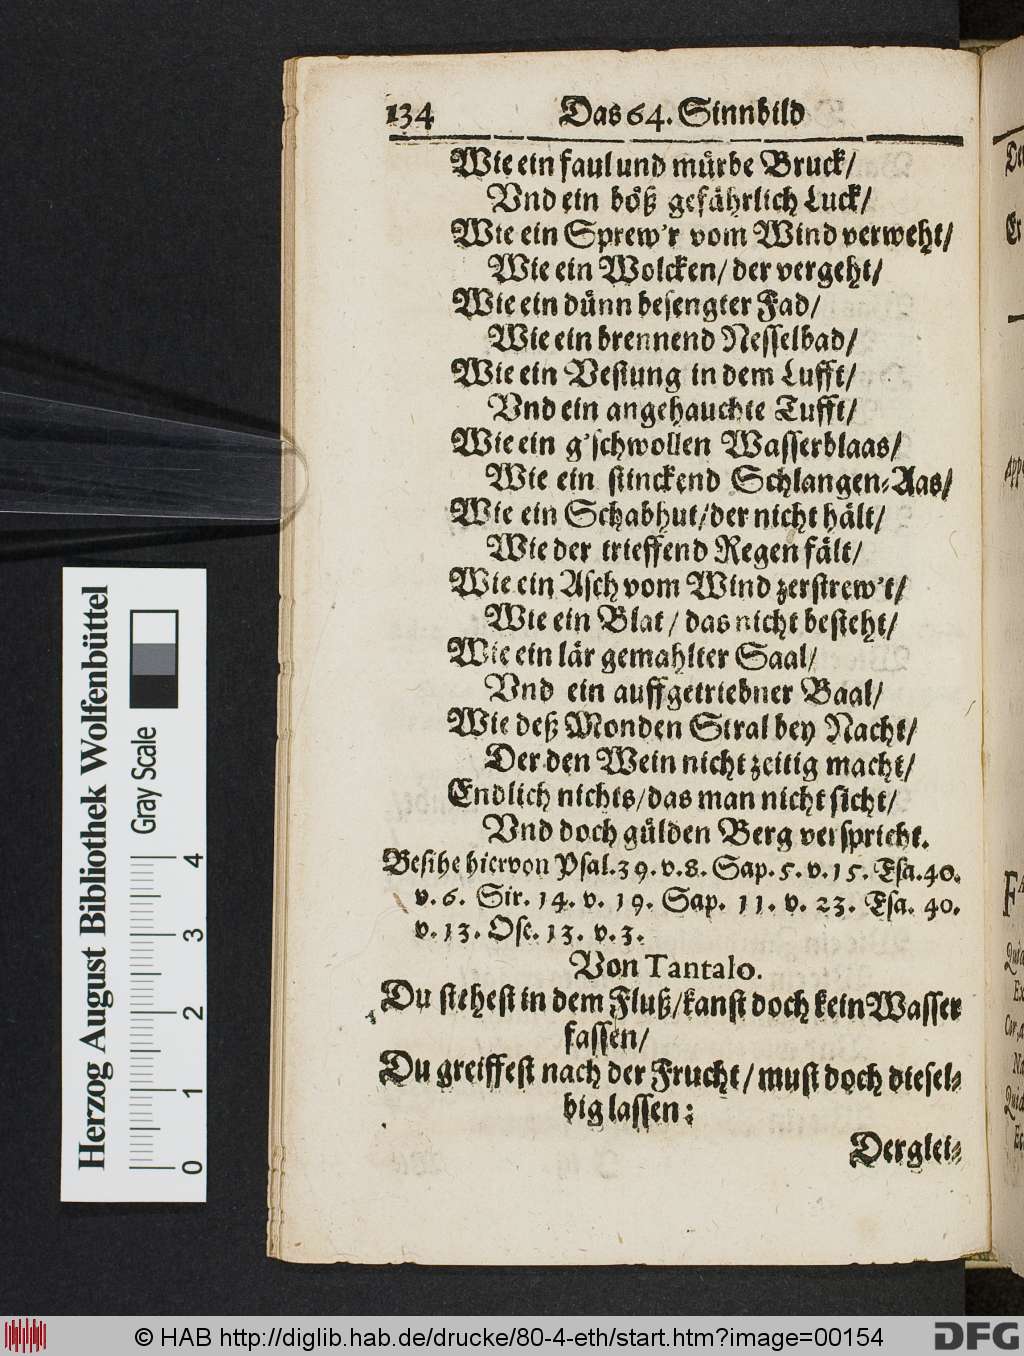 134 Das 64. Sinnbild
Wie ein faul und mürbe Bruck/
Vnd ein böß gefährlich Luck/
Wie ein Sprew'r vom Wind verweht/
Wie ein Wolcken/ der vergeht/
Wie ein dünn besengter Fad/
Wie ein brennend Nesselbad/
Wie ein Vestung in dem Lufft/
Vnd ein angehauchte Tufft/
Wie ein g'schwollen Wasserblaas/
Wie ein stinckend Schlangen-Aas/
Wie ein Schabhut/der nicht hält/
Wie der trieffend Regen fält/
Wie ein Asch vom Wind zerstrew't/
Wie ein Blat/ das nicht besteht/
Wie ein lär gemahlter Saal/
Vnd ein auffgetriebner Baal/
Wie deß Monden Stral bey Nacht/
Der den Wein nicht zeitig macht/
Endlich nichts/das man nicht sicht/
Vnd doch gülden Berg verspricht.
Besihe hiervon Psal.39.v.8. Sap.5.v.15. Esa.40.
v.6. Sir. 14. v. 19. Sap. 11. v. 23. Esa. 40.
v.13. Ose. 13. v.3.
Von Tantalo.
Du stehest in dem Fluß/kanst doch kein Wasser
fassen/
Du greiffest nach der Frucht/ must doch diesel-
big lassen:
Derglei-
Herzog August Bibliothek Wolfenbüttel
Gray Scale
0 1 2 3 4
© HAB http://diglib.hab.de/drucke/80-4-eth/start.htm?image=00154
DFG